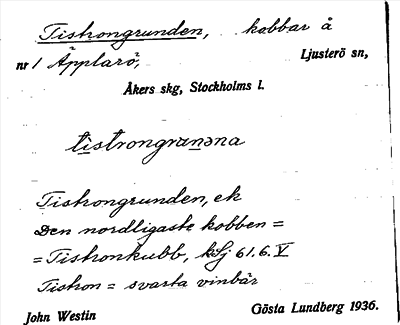 Tishongrunden, kobbar å
nr 1 Äpplarö, Ljusterö sn,
Åkers skg, Stockholms l.
Tishongrunden, ek
Den nordligaste kobben =
= Tishonkubb, kSj 61.6.V
Tishon = svarta vinbär
John Westin Gösta Lundberg 1936.